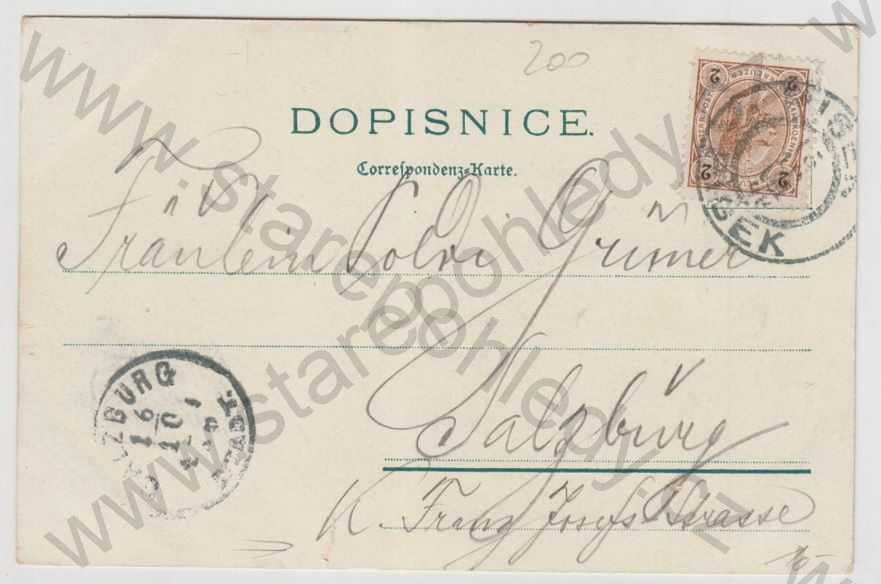 200
DOPISNICE.
Correspondenz-Karte.
Fräulein Poldi Grüner
Salzburg
K. Franz Josefs Strasse
2 KREUZER 2
2 2
SALZBURG
16
10
STADT
www.starepohledy.cz
www.starepohledy.cz